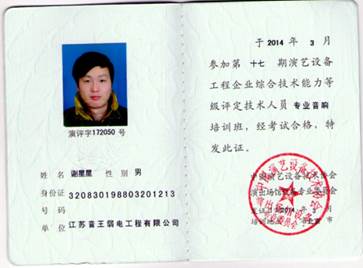 演评字172050 号
姓 名 谢星星 性 别 男
身份证 320830198803201213
号 码
单 位 江苏音王弱电工程有限公司
于 2014 年 3 月
参加第 十七 期演艺设备
工程企业综合技术能力等
级评定技术人员 专业音响
培训班，经考试合格，特
发此证。
中国演艺设备技术协会
演出场馆设备专业委员会